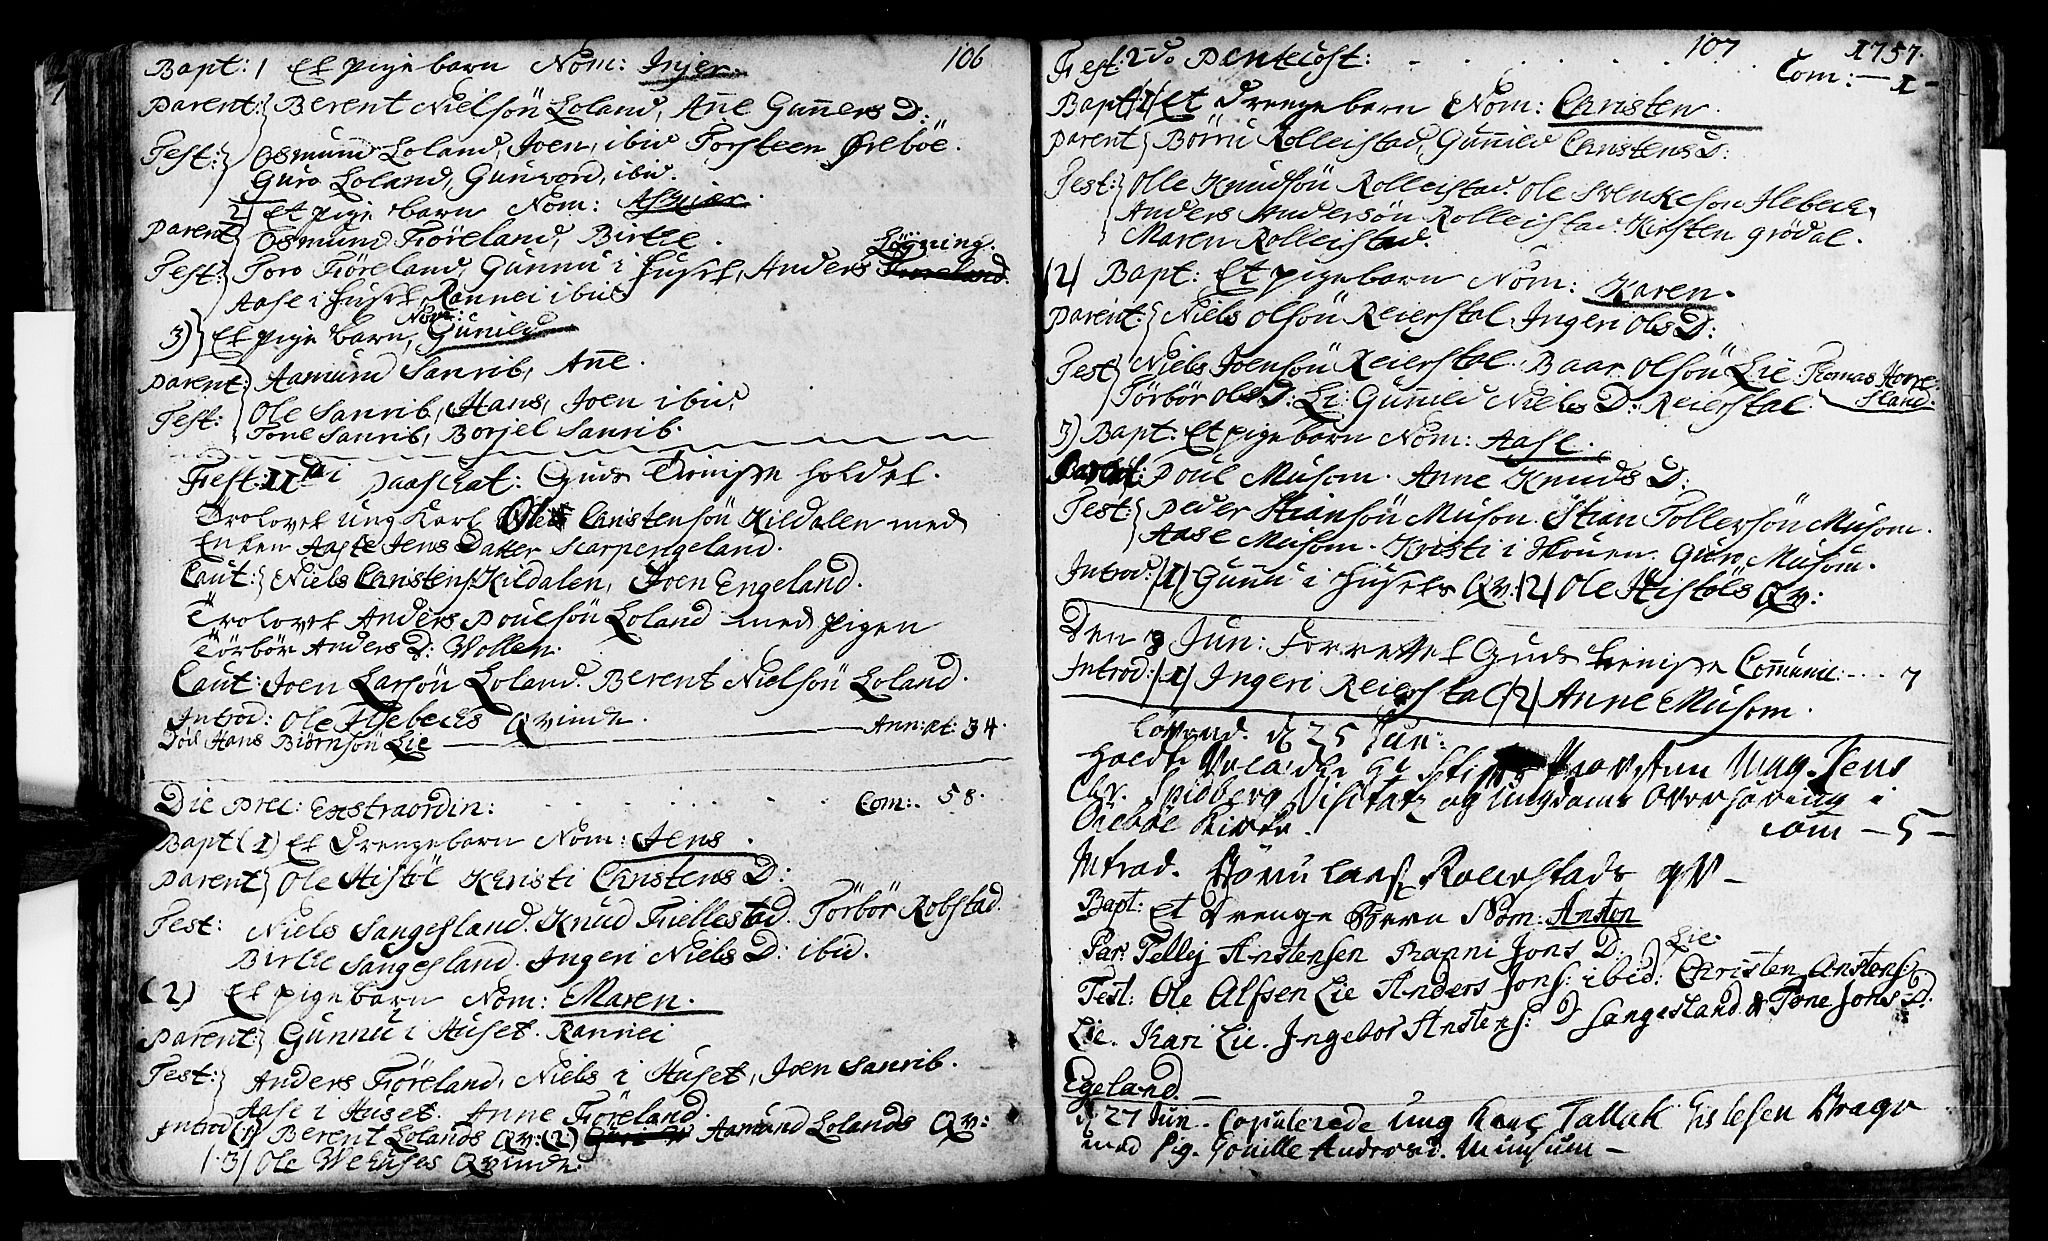 106
Bapt: 1 Et pige barn Nom: Injer.
Parent: Berent Nielsön Loland, Ane Guners D:
Test: Osmund Loland, Joen, ibid Torsteen Öreböe.
Guro Loland, Gunvord, ibid.
2) Et pige barn Nom: Asgier.
Parent Osmund Fiöreland, Birtte.
Test: Toro Fiöreland, Gunnu i Huset, Anders Lögning.
Aase i Huset Rannei ibid
3) Et pige barn, Nom: Gunild
Parent: Aamund Sanrib, Ane.
Test: Ole Sanrib, Hans, Joen ibid,
Tone Sanrib, Borjel Sanrib.
Fest: II di paaschat: Guds Tieniste holdet.
Trolovet ung Karl Ole Christensön Kildalen med
Enken Aaste Jens Datter Scarpengeland.
Caut: Niels Christens: Kildalen, Joen Engeland.
Trolovet Anders Poulsön Loland med pigen
Törbör Anders D: Wollen.
Caut: Joen Larsön Loland. Berent Nielsön Loland.
Introd: Ole Flebecks Qvinde.
Död Hans Biörnsön Lie — Ann: æt: 34.
Die Prec: Exstraordin: Com:. 58.
Bapt (1) Et Drengebarn Nom: Jens.
Parent Ole Stistöl Kristi Christens D:
Test: Niels Sangesland. Knud Fiellestad. Törbör Robstad.
Birtte Sangesland. Ingeri Niels D: ibid.
(2) Et pige barn Nom: Maren.
Parent: Gunnu i Huset. Rannei
Test: Anders Fiöreland, Niels i Huset, Joen Sanrib.
Aase i Huset. Anne Fiöreland.
Introd (1) Berent Lolands Qv: (2) Aamund Lolands Qv:
(3) Ole Wehuses Qvinde.
107 1757.
Fest: 2do Pentecost: Com: — 1 —
Bapt: 1) Et Drenge barn Nom: Christen.
Parent Börru Rolleistad, Gunild Christens D:
Test: Olle Knudsön Rolleistad. Ole Svenkeson Flebeck,
Anders Andersön Rolleistad. Kirsten Grödal.
Maren Rolleistad.
(2) Bapt: Et pige barn Nom: Karen.
Parent: Niels Olsön Reierstal. Ingeri Ols D:
Test Niels Joensön Reierstal. Baar Olsön Lie Tomas Homeland.
Törbör Ols D: Li: Gunild Niels D: Reierstal.
3) Bapt: Et pige barn Nom: Aase.
Parent: Poul Musom. Anne Knuds D:
Test: Peder Stiansön Muson. Stian Tollersön Musom.
Aase Musom. Kristi i Skouen. Guro Musom.
Introd: (1) Gunnu i Husets Qv: (2) Ole Stistöls Qv:
Den 3 Jun: Forrettet Guds tieniste Comunic: ... 7
Introd: (1) Ingeri Reierstal (2) Anne Musom.
Löverd. d 25 Jun:
holdt Provsten Mag. Jens
Chr. Spidberg Visitatz og Ungdoms Overhöring i
Örebøe Kirke. com — 5 —
Introd. Rolerstads qv —
Bapt: Et Drenge Barn Nom: Ansten
Par: Tellej Anstensen Ranni Jons D. Lie.
Test: Ole Alfsen Lie Anders Jons: ibid: Christen Anstens:
Lie. Kari Lie. Ingebor Anstens: D Sangesland & Tone Jons D.
Egeland. —
d 27 Jun. Copulerede ung Karl Tallak Gislesen Drage
med Pig. Gonille Andersd. Munsum —